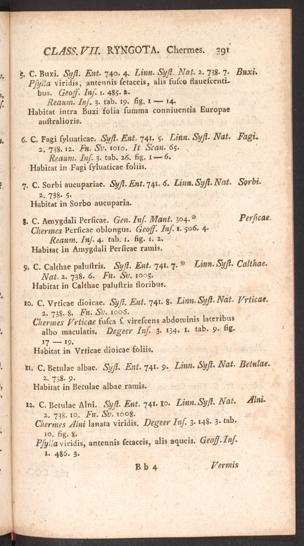 CLASS. VII. RYNGOTA. Chermes. 391
5. C. Buxi. Syſt. Ent. 740. 4. Linn. Syſt. Nat. 2. 738. 7. Buxi.
Pſylla viridis, antennis ſetaceis, alis fuſco flaueſcenti-
bus. Geoff. Inſ. 1. 485. 2.
Reaum. Inſ. 3. tab. 19. fig. 1 — 14.
Habitat intra Buxi folia ſumma conniuentia Europae
auſtralioris.
6. C. Fagi ſyluaticae. Syſt. Ent. 741. 5. Linn. Syſt. Nat. Fagi.
2. 738. 12. Fn. Sv. 1010. It. Scan. 65.
Reaum. Inſ. 3. tab. 26. fig. 1 — 6.
Habitat in Fagi ſyluaticae foliis.
7. C. Sorbi aucupariae. Syſt. Ent. 741. 6. Linn. Syſt. Nat. Sorbi.
2. 738. 5.
Habitat in Sorbo aucuparia.
8. C. Amygdali Perſicae. Gen. Inſ. Mant. 304.* Perſicae.
Chermes Perſicae oblongus. Geoff. Inſ. 1. 506. 4.
Reaum. Inſ. 4. tab. 1. fig. 1. 2.
Habitat in Amygdali Perſicae ramis.
9. C. Calthae paluſtris. Syſt. Ent. 741. 7.* Linn. Syſt. Calthae.
Nat. 2. 738. 6. Fn. Sv. 1005.
Habitat in Calthae paluſtris floribus.
10. C. Vrticae dioicae. Syſt. Ent. 741. 8. Linn. Syſt. Nat. Vrticae.
2. 738. 8. Fn. Sv. 1006.
Chermes Vrticae fuſca ſ. vireſcens abdominis lateribus
albo maculatis. Degeer Inſ. 3. 134. 1. tab. 9. fig.
17 — 19.
Habitat in Vrticae dioicae foliis.
11. C. Betulae albae. Syſt. Ent. 741. 9. Linn. Syſt. Nat. Betulae.
2. 738. 9.
Habitat in Betulae albae ramis.
12. C. Betulae Alni. Syſt. Ent. 741. 10. Linn. Syſt. Nat. Alni.
2. 738. 10. Fn. Sv. 1008.
Chermes Alni lanata viridis. Degeer Inſ. 3. 148. 3. tab.
10. fig. 8.
Pſylla viridis, antennis ſetaceis, alis aqueis. Geoff. Inſ.
1. 486. 3.
B b 4 Vermis